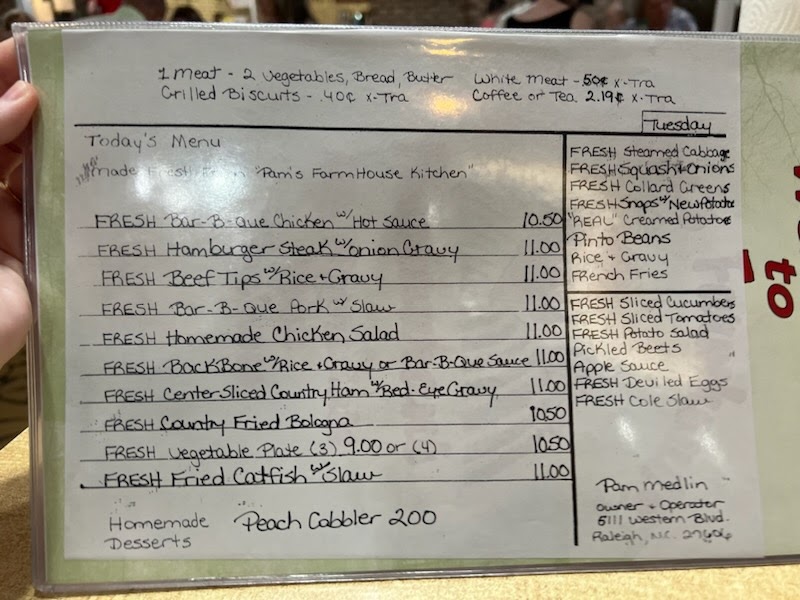 1 Meat - 2 Vegetables, Bread, Butter
Grilled Biscuits - .40¢ X-Tra
White meat - .50¢ X-Tra
Coffee or Tea 2.19¢ X-Tra
Tuesday
Today's Menu
made Fresh From "Pam's FarmHouse Kitchen"
FRESH Bar-B-Que Chicken w/ Hot sauce 10.50
FRESH Hamburger Steak w/ onion Gravy 11.00
FRESH Beef Tips w/ Rice + Gravy 11.00
FRESH Bar-B-Que Pork w/ Slaw 11.00
FRESH Homemade Chicken Salad 11.00
FRESH BackBone w/ Rice + Gravy or Bar-B-Que Sauce 11.00
FRESH Center Sliced Country Ham w/ Red-Eye Gravy 11.00
FRESH Country Fried Bologna 1050
FRESH Vegetable Plate (3) 9.00 or (4) 1050
FRESH Fried Catfish w/ Slaw 11.00
Homemade Desserts Peach Cobbler 200
FRESH Steamed Cabbage
FRESH Squash + Onions
FRESH Collard Greens
FRESH Snaps w/ New Potato
"REAL" Creamed Potatoe
Pinto Beans
Rice + Gravy
French Fries
FRESH Sliced Cucumbers
FRESH Sliced Tomatoes
FRESH Potato Salad
Pickled Beets
Apple Sauce
FRESH Deviled Eggs
FRESH Cole Slaw
Pam Medlin
owner + Operator
5111 Western Blvd.
Raleigh, N.C. 27606
to